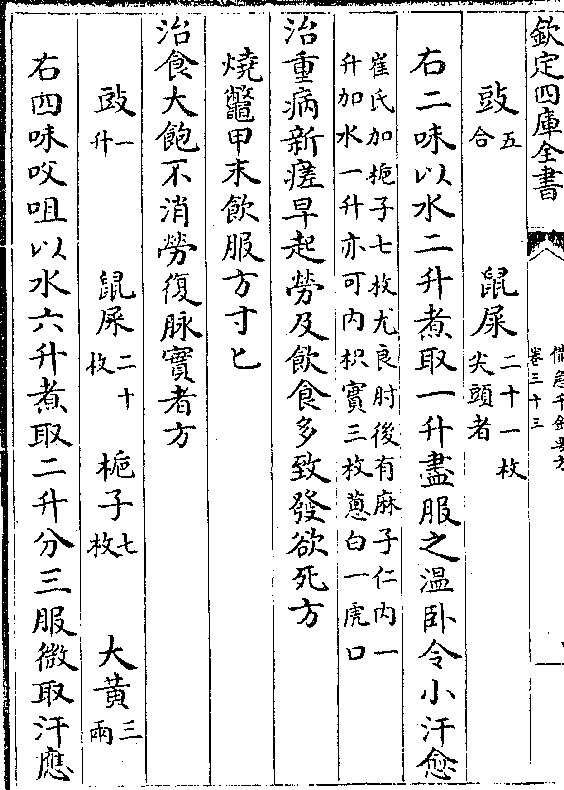 欽定四庫全書
備急千金要方
卷三十三
豉五合
鼠屎二十一枚尖頭者
右二味以水二升煮取一升盡服之溫卧令小汗愈
崔氏加梔子七枚尤良肘後有麻子仁內一
升加水一升亦可內枳實三枚蔥白一虎口
治重病新瘥早起勞及飲食多致發欲死方
燒鼈甲末飲服方寸匕
治食大飽不消勞復脉實者方
豉一升
鼠屎二十枚
梔子七枚
大黃三兩
右四味㕮咀以水六升煮取二升分三服微取汗應